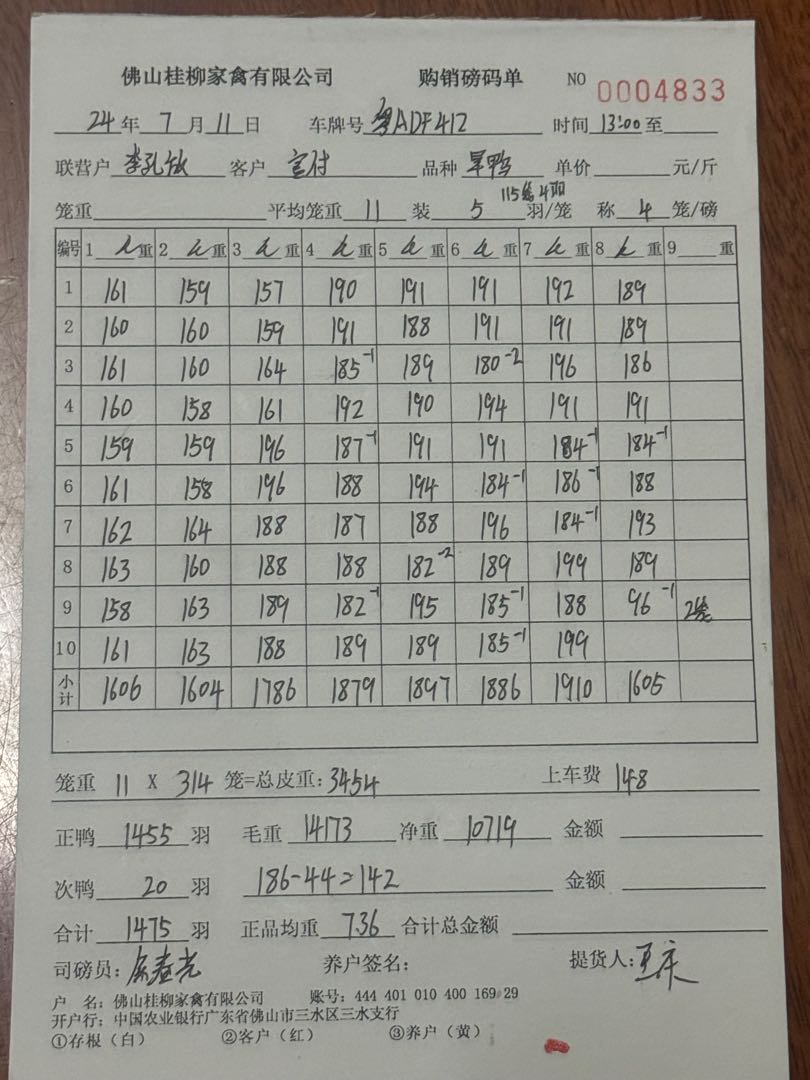 佛山桂柳家禽有限公司 购销磅码单 NO 0004833
24年 7月 11日 车牌号 粤ADF412 时间 13:00至
联营户 李孔 客户 品种 旱鸭 单价 元/斤
115笼4羽
笼重 平均笼重 11 装 5 羽/笼 称 4 笼/磅
编号 1 重 2 重 3 重 4 重 5 重 6 重 7 重 8 重 9 重
1 161 159 157 190 191 191 192 189
2 160 160 159 191 188 191 191 189
3 161 160 164 185-1 189 180-2 196 186
4 160 158 161 192 190 194 191 191
5 159 159 196 187-1 191 191 184-1 184-1
6 161 158 196 188 194 184-1 186-1 188
7 162 164 188 187 188 196 184-1 193
8 163 160 188 188 182-2 189 199 189
9 158 163 189 182-1 195 185-1 188 96-1 2笼
10 161 163 188 189 189 185-1 199
小计 1606 1604 1786 1879 1897 1886 1910 1605
笼重 11 X 314 笼=总皮重:3454 上车费 148
正鸭 1455 羽 毛重 14173 净重 10719 金额
次鸭 20 羽 186-44=142 金额
合计 1475 羽 正品均重 7.36 合计总金额
司磅员: 养户签名: 提货人:王庆
户 名:佛山桂柳家禽有限公司 账号:444 401 010 400 169 29
开户行:中国农业银行广东省佛山市三水区三水支行
①存根(白) ②客户(红) ③养户(黄)